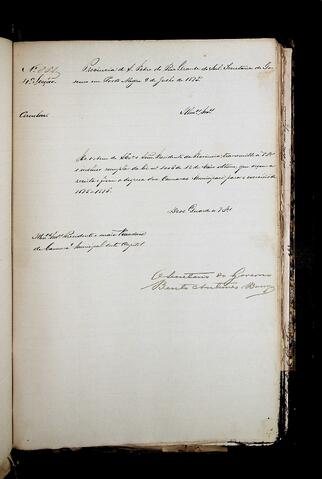 Provincia de S. Pedro do Rio Grande do Sul. Secretaria do Go-
verno em Porto Alegre 9 de Julho de 1875.
4ª Secção
Circular
Illmos Snrs.
De ordem de S. Exª o Snr. Presidente da Provincia, transmitto a VSas
o incluso exemplar da lei nº de 12 de Maio ultimo, que orça a
receita e fixa a despeza das Camaras Municipaes para o exercicio de
1875-1876.
Deos Guarde a VSas
Illmos Snrs. Presidente e mais Vereadores
da Camara Municipal desta Capital.
O Secretario do Governo
Bento Antunes